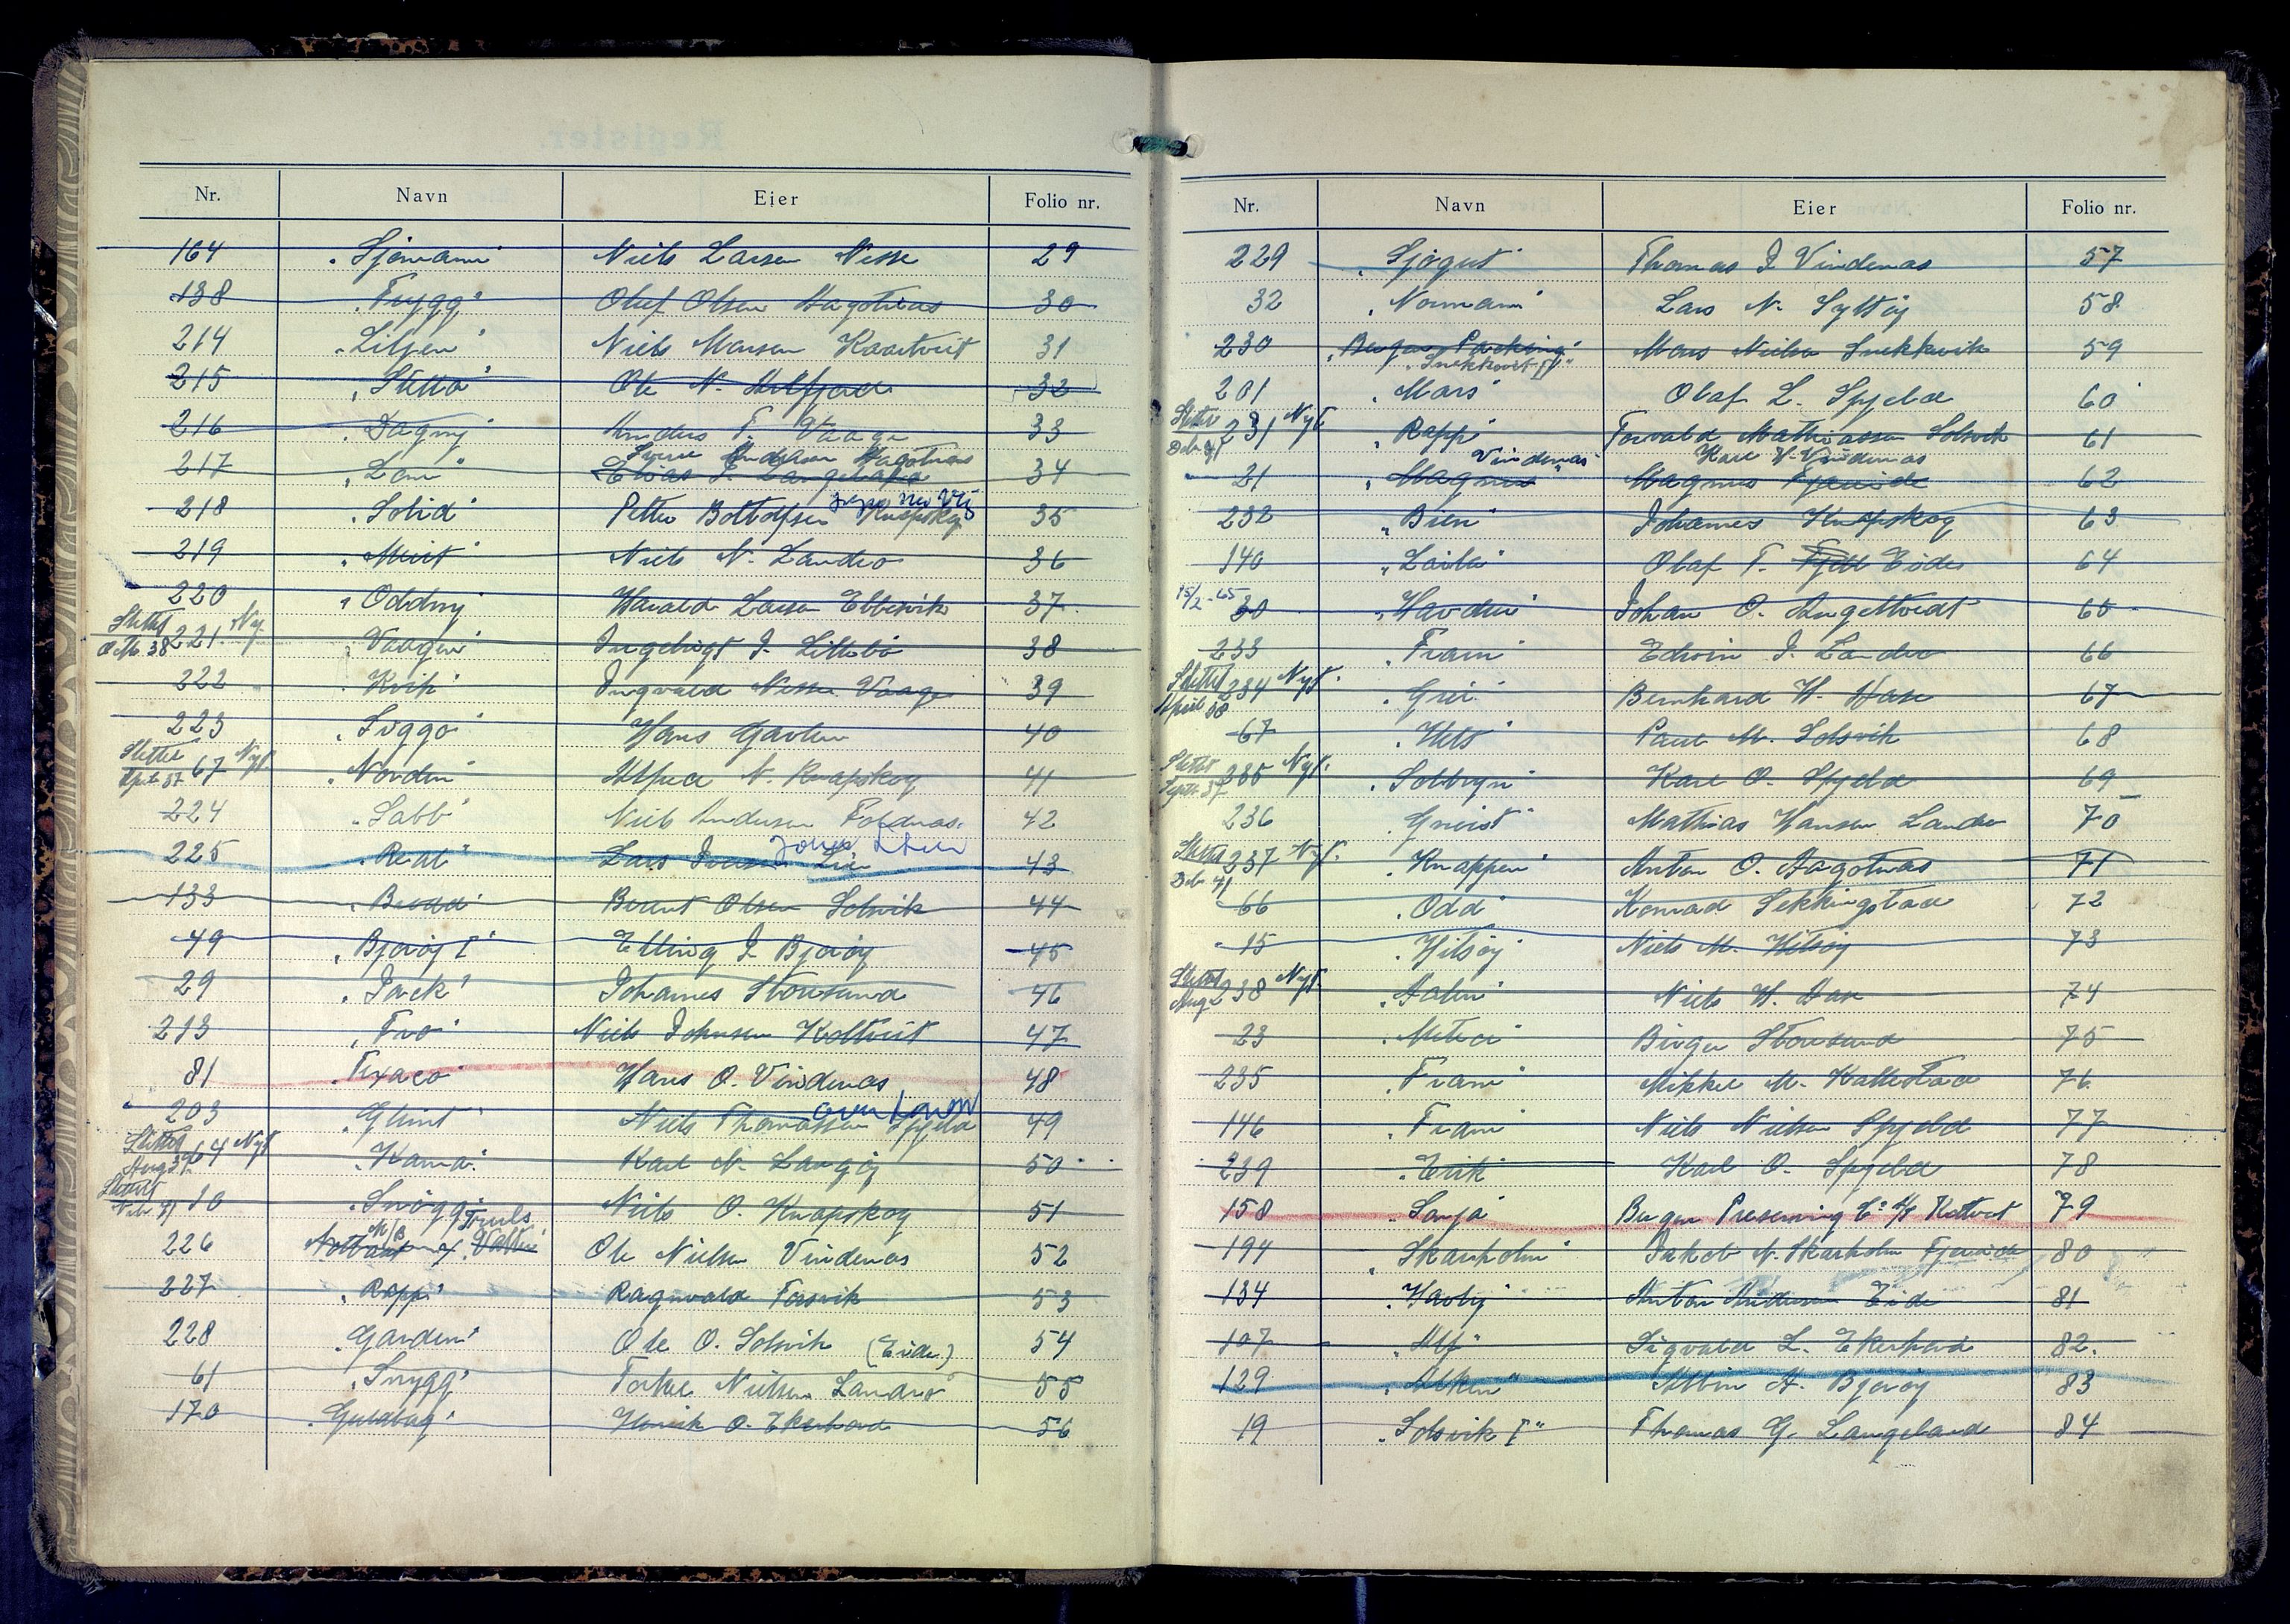 Nr. Navn Eier Folio nr.
164 "Sjømann" Niels Larsen Nesse 29
138 "Trygg" Oluf Olsen Hagstnas 30
214 "Liljen" Niels Monsen Kaartveit 31
215 "Stella" Ole N. 32
216 "Dagny" Anders T. Vaage 33
Sverre Andersen Hagotnas
217 "Leni" Elias J. Langeland 34
218 "Solid" Petter Bottolfsen Knapskog 35
219 "Meist" Niels N. Landro 36
220 "Oddny" Harald Larsen Ebbesvik 37
Slettet Okt. 38 221. Ny. "Vaagen" Ingebrigt J. Littebø 38
222 "Kvik" Ingvald Nesse Vaage 39
223 "Siggo" Hans Garlen 40
Slettet Sept. 37 67 Nyt. "Nordin" Alfred N. Knapskog 41
224 "Sabb" Niels Andersen Foldnas. 42
225 "Real" Lars Iversen Lie 43
133 "Brodd" Berent Olsen Solsvik 44
49 "Bjorøy I" Elling J. Bjorøy 45
29 "Jack" Johannes Storesund 46
213 "Tro" Niels Johnsen Koltveit 47
81 "Texaco" Hans O. Vindenas 48
203 "Glimt" Niels Thomassen Spjeld 49
Slettet Aug. 39 64 Nyt "Kama" Karl N. Langøy 50
Slettet 41 10 "Snøgg" Niels O. Knapskog 51
M/B Truls
226 Ole Nielsen Vindenas 52
227 "Rapp" Ragnvald Forsvik 53
228 "Garden" Ole O. Solsvik (Eide.) 54
61 "Snygg" Torkel Nielsen Landro 55
170 "Guldberg" Henrik O. Ekerhovd 56
Nr. Navn Eier Folio nr.
229 "Sjøgut" Thomas J. Vindenas 57
32 "Normann" Lars N. Syltøy 58
230 "Bergen Packing" Mons Nielsen Snekkevik 59
"Snekkevik IV"
201 "Mars" Olaf L. Spjeld 60
Slettet Deb. 41 231 Nyt. "Rapp" Torvald Mathiassen Solsvik 61
Vindenas Karl V. Vindenas
21 "Magnus" Magnus Fjæreide 62
232 "Bien" Johannes Knapskog 63
140 "Laila" Olaf T. Fjell Eide 64
15/2-65 30 "Havdur" Johan O. Angeltveidt 65
233 "Fram" Edvin J. Landro 66
Slettet April 38 234 Nyt. "Grei" Bernhard H. Aase 67
67 Paul M. Solsvik 68
Slettet Septr. 37 235 Nyt. "Solbryn" Karl O. Spjeld 69
236 "Gneist" Mathias Hansen Landro 70
Slettet Deb. 41 237 Nyt. "Knappen" Anton O. Aagotnas 71
66 "Odd" Konrad Sekkingstad 72
15 "Hilsøy" Niels M. Hilsøy 73
Slettet Aug. 238 Nyt. Niels H. Aase 74
23 "Meteor" Birger Storesund 75
235 "Fram" Mikkel M. Kallestad 76
146 "Fram" Niels Nielsen Spjeld 77
239 "Erik" Karl O. Spjeld 78
158 "Sonja" Bergen Preserving Co A/S Kottveit 79
194 "Skarholm" Jakob N. Skarholm Fjæreide 80
134 "Havly" Anton Andersen Eide 81
107 "Alf" Sigvald L. Ekerhovd 82.
129 "Alken" Albin A. Bjorøy 83
19 "Solsvik I" Thomas G. Langeland 84